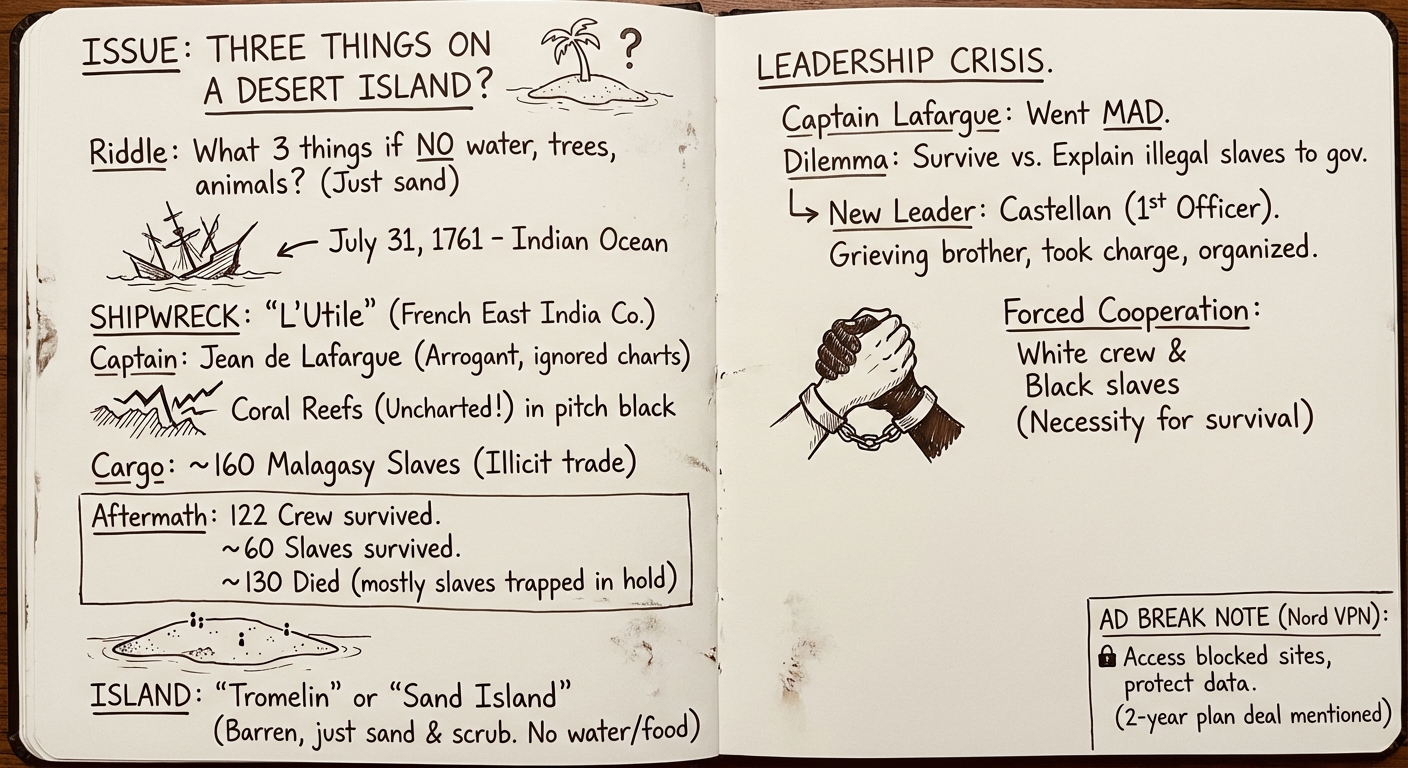 ISSUE: THREE THINGS ON
A DESERT ISLAND?
?
Riddle: What 3 things if NO water, trees,
animals? (Just sand)
July 31, 1761 - Indian Ocean
SHIPWRECK: "L'Utile" (French East India Co.)
Captain: Jean de Lafargue (Arrogant, ignored charts)
Coral Reefs (Uncharted!) in pitch black
Cargo: ~160 Malagasy Slaves (Illicit trade)
Aftermath: 122 Crew survived.
~60 Slaves survived.
~130 Died (mostly slaves trapped in hold)
ISLAND: "Tromelin" or "Sand Island"
(Barren, just sand & scrub. No water/food)
LEADERSHIP CRISIS.
Captain Lafargue: Went MAD.
Dilemma: Survive vs. Explain illegal slaves to gov.
New Leader: Castellan (1st Officer).
Grieving brother, took charge, organized.
Forced Cooperation:
White crew &
Black slaves
(Necessity for survival)
AD BREAK NOTE (Nord VPN):
Access blocked sites,
protect data.
(2-year plan deal mentioned)